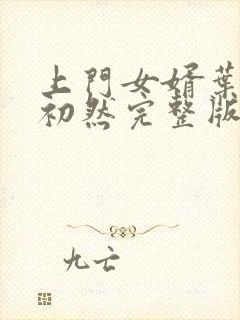 上門女婿葉
初然完整版
九亡